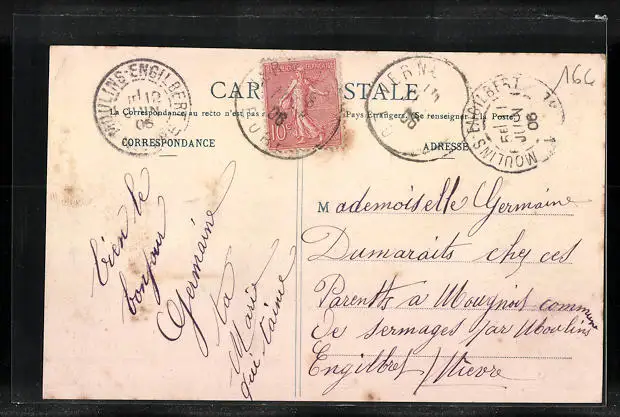 166
CARTE POSTALE
La Correspondance au recto n'est pas Pays Etrangers. (Se renseigner à la Poste)
CORRESPONDANCE
ADRESSE
MOULINS-ENGILBERT
12
JUIN
06
RÉPUBLIQUE FRANÇAISE
10c
06
MOULINS-ENGILBERT
JUIN
06
bien le
bonjour
Germaine
ta
Marie
qui t'aime
Mademoiselle Germaine
Dumaraits chez ces
Parents a Mougnois commune
de Sermages par Moulins
Engilbert / Nievre